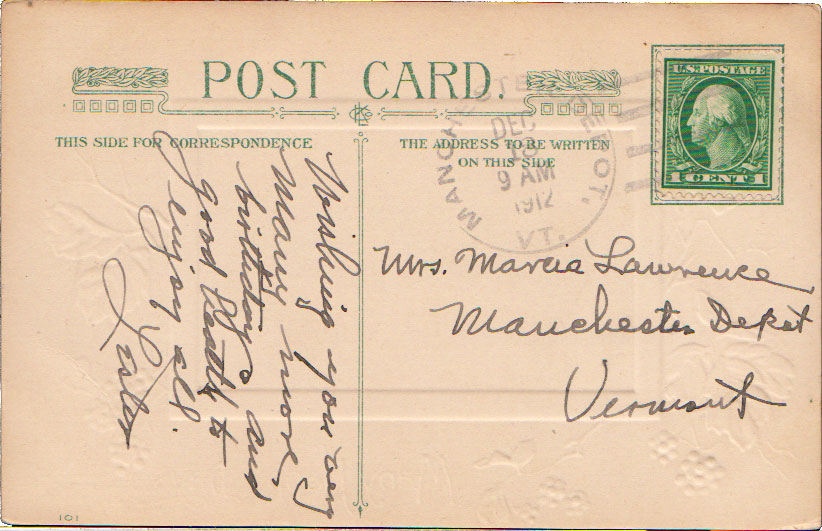 POST CARD.
THIS SIDE FOR CORRESPONDENCE
THE ADDRESS TO BE WRITTEN
ON THIS SIDE
MANCHESTER DEPOT, VT.
DEC
9 AM
1912
U.S. POSTAGE
1 CENT 1
Wishing you very
Many more
birthdays and
good health to
enjoy all.
Lester
Mrs. Marcia Lawrence
Manchester Depot
Vermont
101